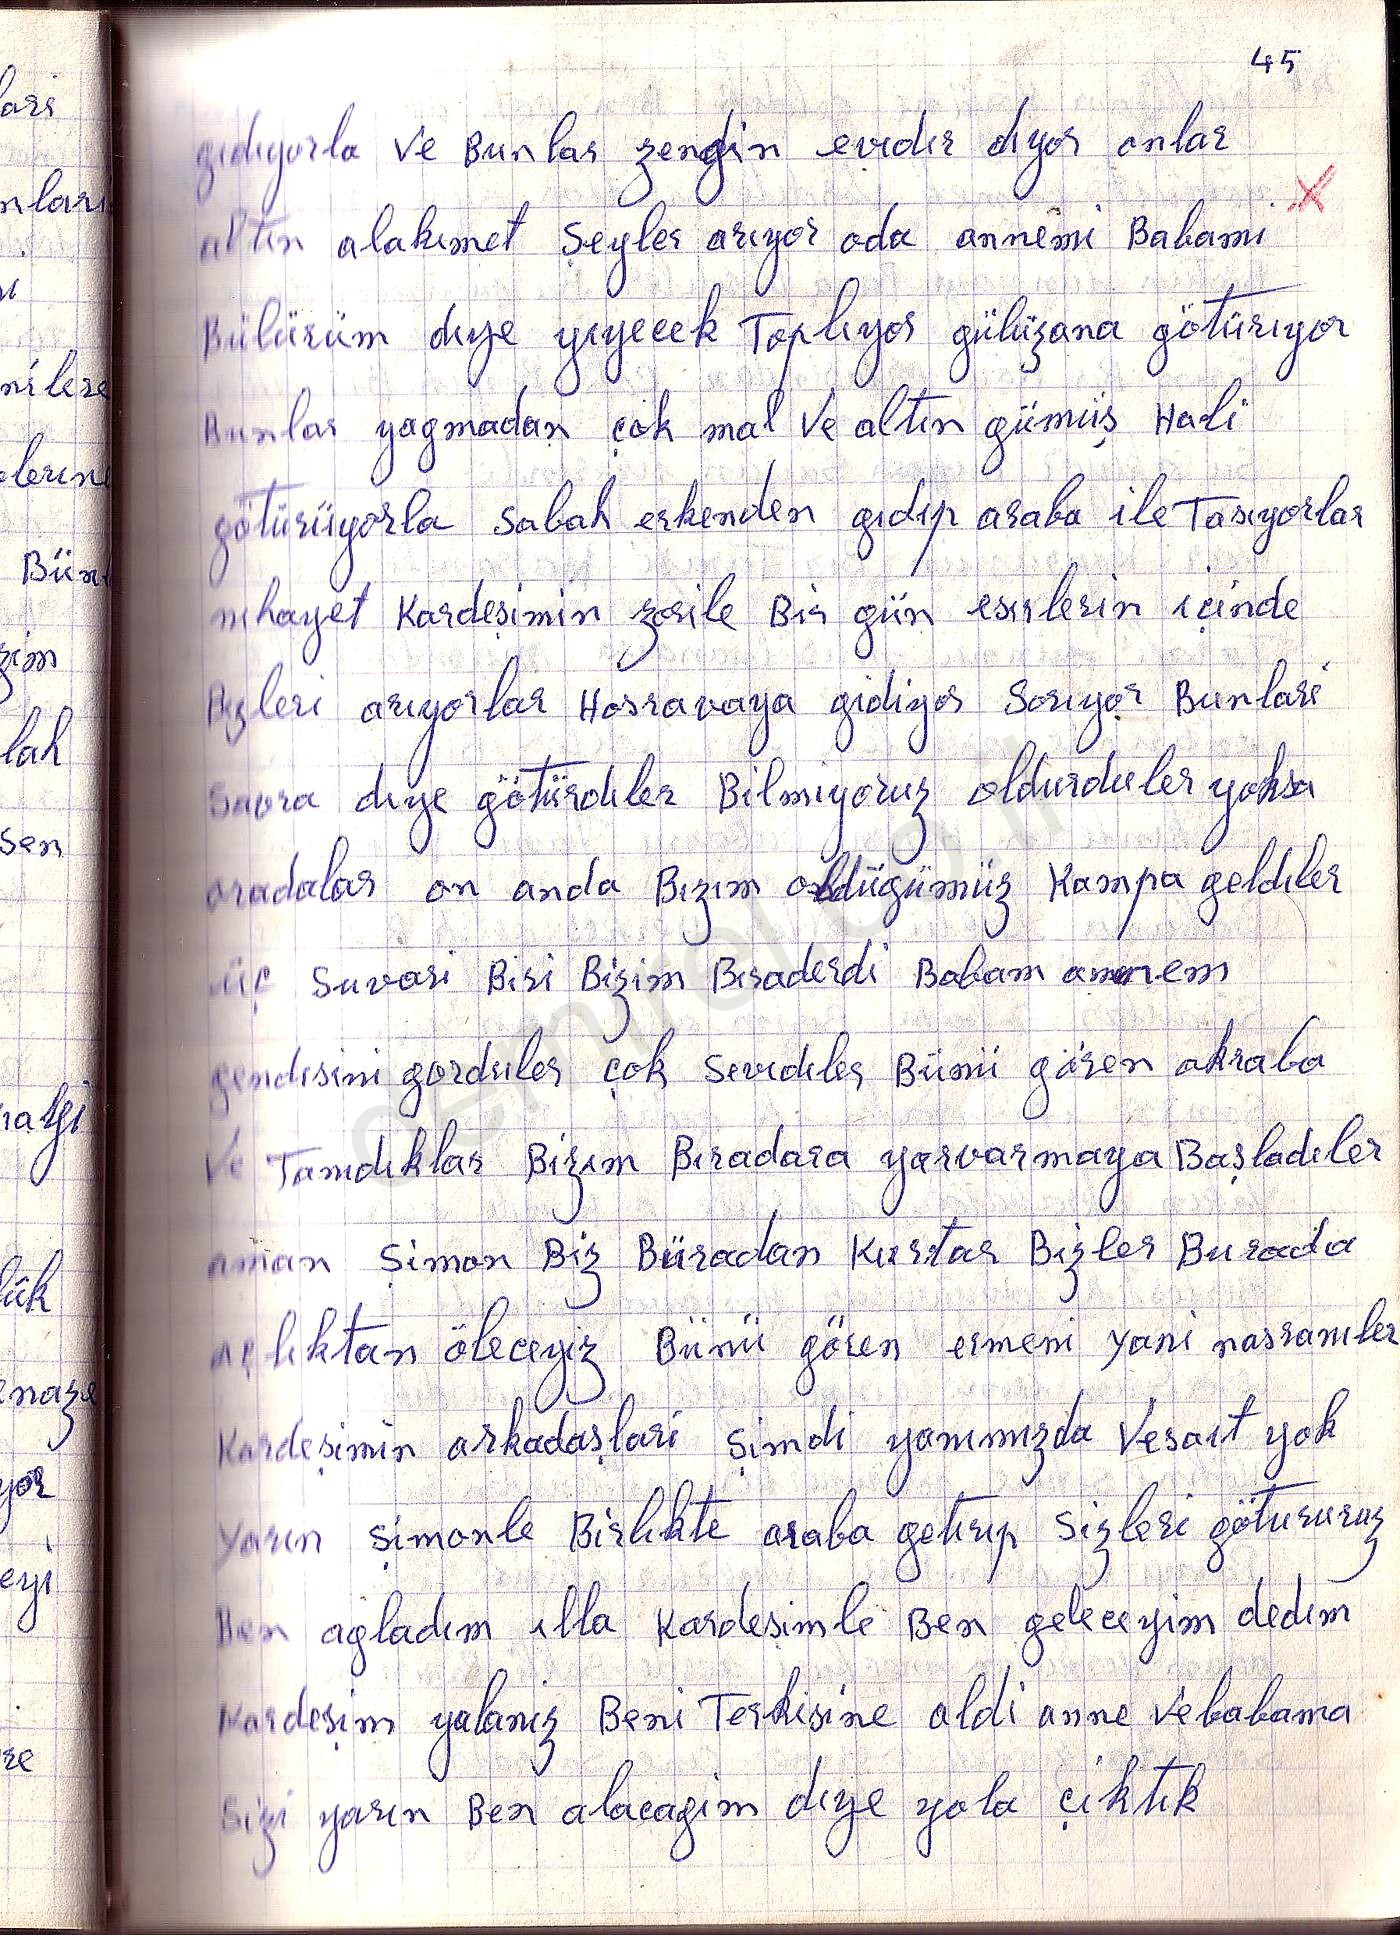 45
gıdıyorla Ve Bunlar zengin evıdır dıyor onlar
altın alakımet Şeyler arıyor oda annemi Babami
Bülürüm dıye yıyecek Toplıyor gülüzana götürıyor
Bunlar yagmadan çok mal Ve altın gümüş Hali
götürüyorla Sabah erkenden gıdıp araba ile Tasıyorlar
nıhayet Kardeşimin zorile Bir gün esırlerin ıçinde
Bızleri arıyorlar Hosravaya gidiyor Sorıyor Bunlari
Savra dıye götürdıler Bilmıyoruz oldurduler yoksa
oradalar on anda Bızım oldügümüz Kampa geldıler
üç Suvari Biri Bizim Bıraderdi Babam annem
gendısini gorduler çok Sevıdıler Bünü gören akraba
Ve Tanıdıklar Bizım Bıradara yarvarmaya Başladıler
aman Şimon Biz Büradan Kurtar Bizler Burada
açlıktan öleceyiz Bünü gören ermeni yani nasranıler
Kardeşimin arkadaşlari Şimdi yanımızda Vesaıt yok
Yarın Şimonle Birlıkte araba getırıp Sizleri götururuz
Ben agladım ılla Kardesimle Ben geleceyim dedım
Kardeşim yalaniz Beni Terkisine aldi anne Vebabama
Sizi yarın Ben alacagim dıye yola çiktık